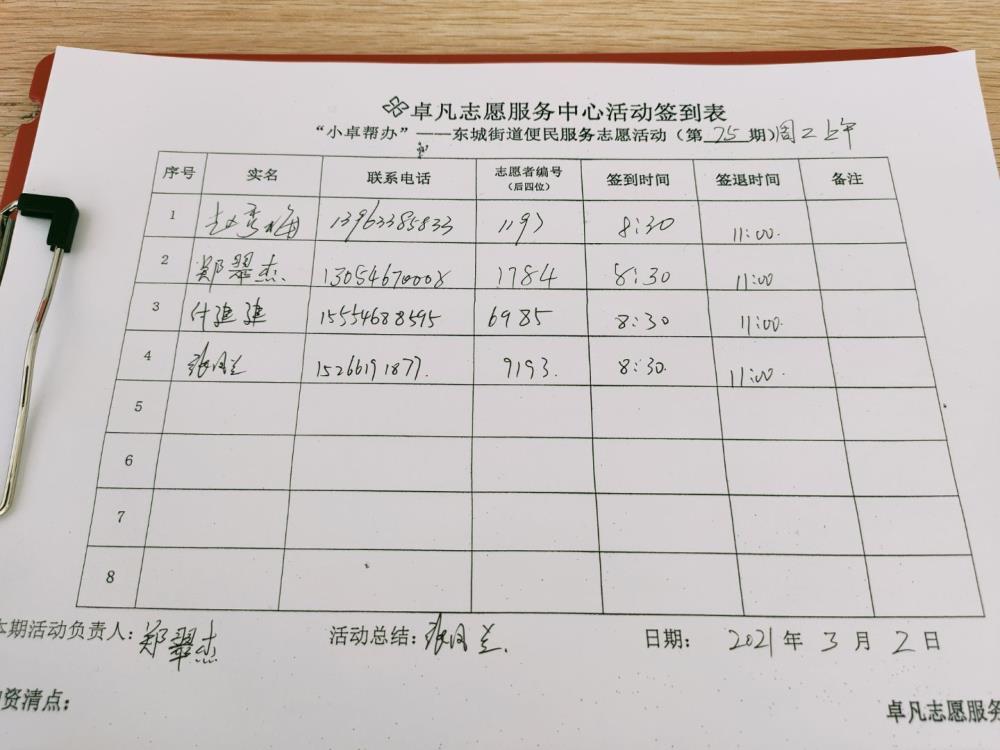 卓凡志愿服务中心活动签到表
“小卓帮办”——东城街道便民服务志愿活动（第 75 期）周二上午
序号 实名 联系电话 志愿者编号（后四位） 签到时间 签退时间 备注
1 赵秀梅 13963385833 1197 8:30 11:00.
2 郑翠杰. 13054670008 1784 8:30 11:00
3 付建建 15554688595 6985 8:30 11:00.
4 张月兰 15266191877. 9193. 8:30. 11:00.
5
6
7
8
本期活动负责人：郑翠杰 活动总结：张月兰. 日期： 2021 年 3 月 2 日
资清点： 卓凡志愿服务